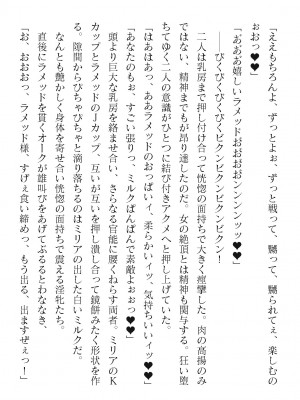 「ええもちろんよ、ずっとよぉ、ずっと戦って、嬲って、嬲られてぇ、楽しむの
おおっ♥♥」
「あああ嬉しいラメッドおおおおンンンンッッ♥♥♥」
──びくびくびくびくビクンビクンビクン！
二人は乳房まで押し付け合って恍惚の面持ちで大きく痙攣した。肉の高揚のみ
ではない、精神までもが昂り達したのだ。女の絶頂とは精神も関与する。狂い堕
ちてゆく二人の意識がひとつに結び付きアクメへと押し上げる。
「はあはあっ、あああラメッドのおっぱいィ、柔らかいイッ、気持ちいいイッ♥♥」
「あなたのもぉ、すごい張りっ、ミルクぱんぱんで素敵よぉおっ♥♥」
頭より巨大な乳房を絡ませ合い、さらなる官能に腰くねらす両者。ミリアのK
カップとラメッドのJカップ、互いが互いを押し潰し合って鏡餅みたく形状を作
る。隙間からぴちゃぴちゃと滴り落ちるのはミリアの出した白いミルクだ。
なんとも艶かしく身体を寄せ合い恍惚の面持ちで震える淫牝たち。
直後にラメッドを貫くオークが雄叫びをあげておるるとわななき、
「お、おおおっ、ラメッド様、すげぇ食い締めっ、もう出る、出ますぜぇっ！」